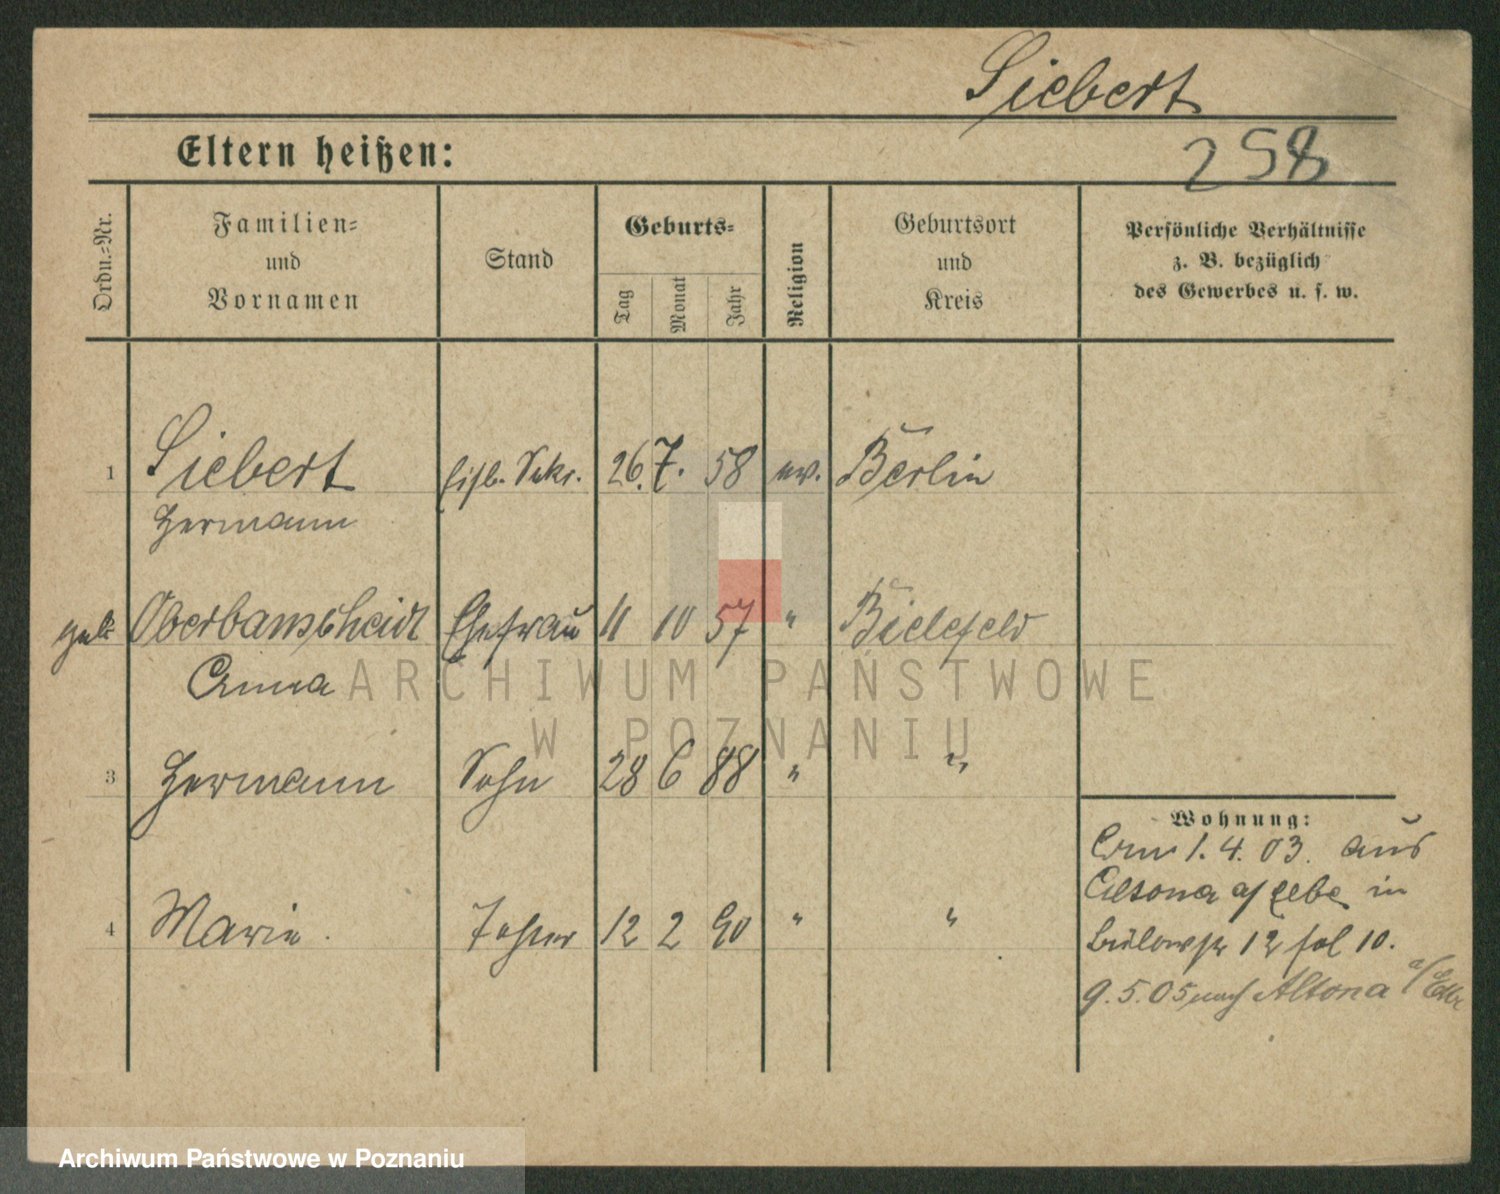 Siebert
258
Eltern heißen:
Ordn.-Nr.
Familien-
und
Vornamen
Stand
Geburts-
Tag
Monat
Jahr
Religion
Geburtsort
und
Kreis
Persönliche Verhältnisse
z. B. bezüglich
des Gewerbes u. s. w.
1 Siebert Eisb. Sekr. 26. 7. 58 ev. Berlin
Hermann
geb. Ehefrau 11 10 57 " Bielefeld
Anna
3 Hermann Sohn 28 6 88 " "
4 Marie Tochter 12 2 90 " "
Wohnung:
1. 4. 03. aus
Altona a/Elbe in
Bülowstr 12 fol 10.
9. 5. 05 nach Altona a/Elbe
ARCHIWUM PAŃSTWOWE
W POZNANIU
Archiwum Państwowe w Poznaniu